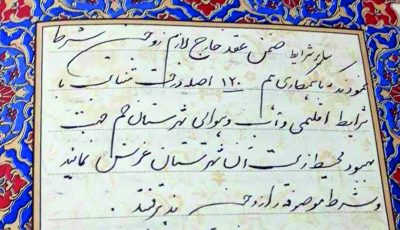 سایر شرایط ضمن عقد خارج لازم زوجین شرط
نمودند با همکاری هم ۱۲۰ اصله درخت متناسب با
شرایط اقلیمی و آب و هوایی شهرستان خم جهت
بهبود محیط زیست آن شهرستان غرس نمایند
و شرط موصوفه را زوجین پذیرفتند.